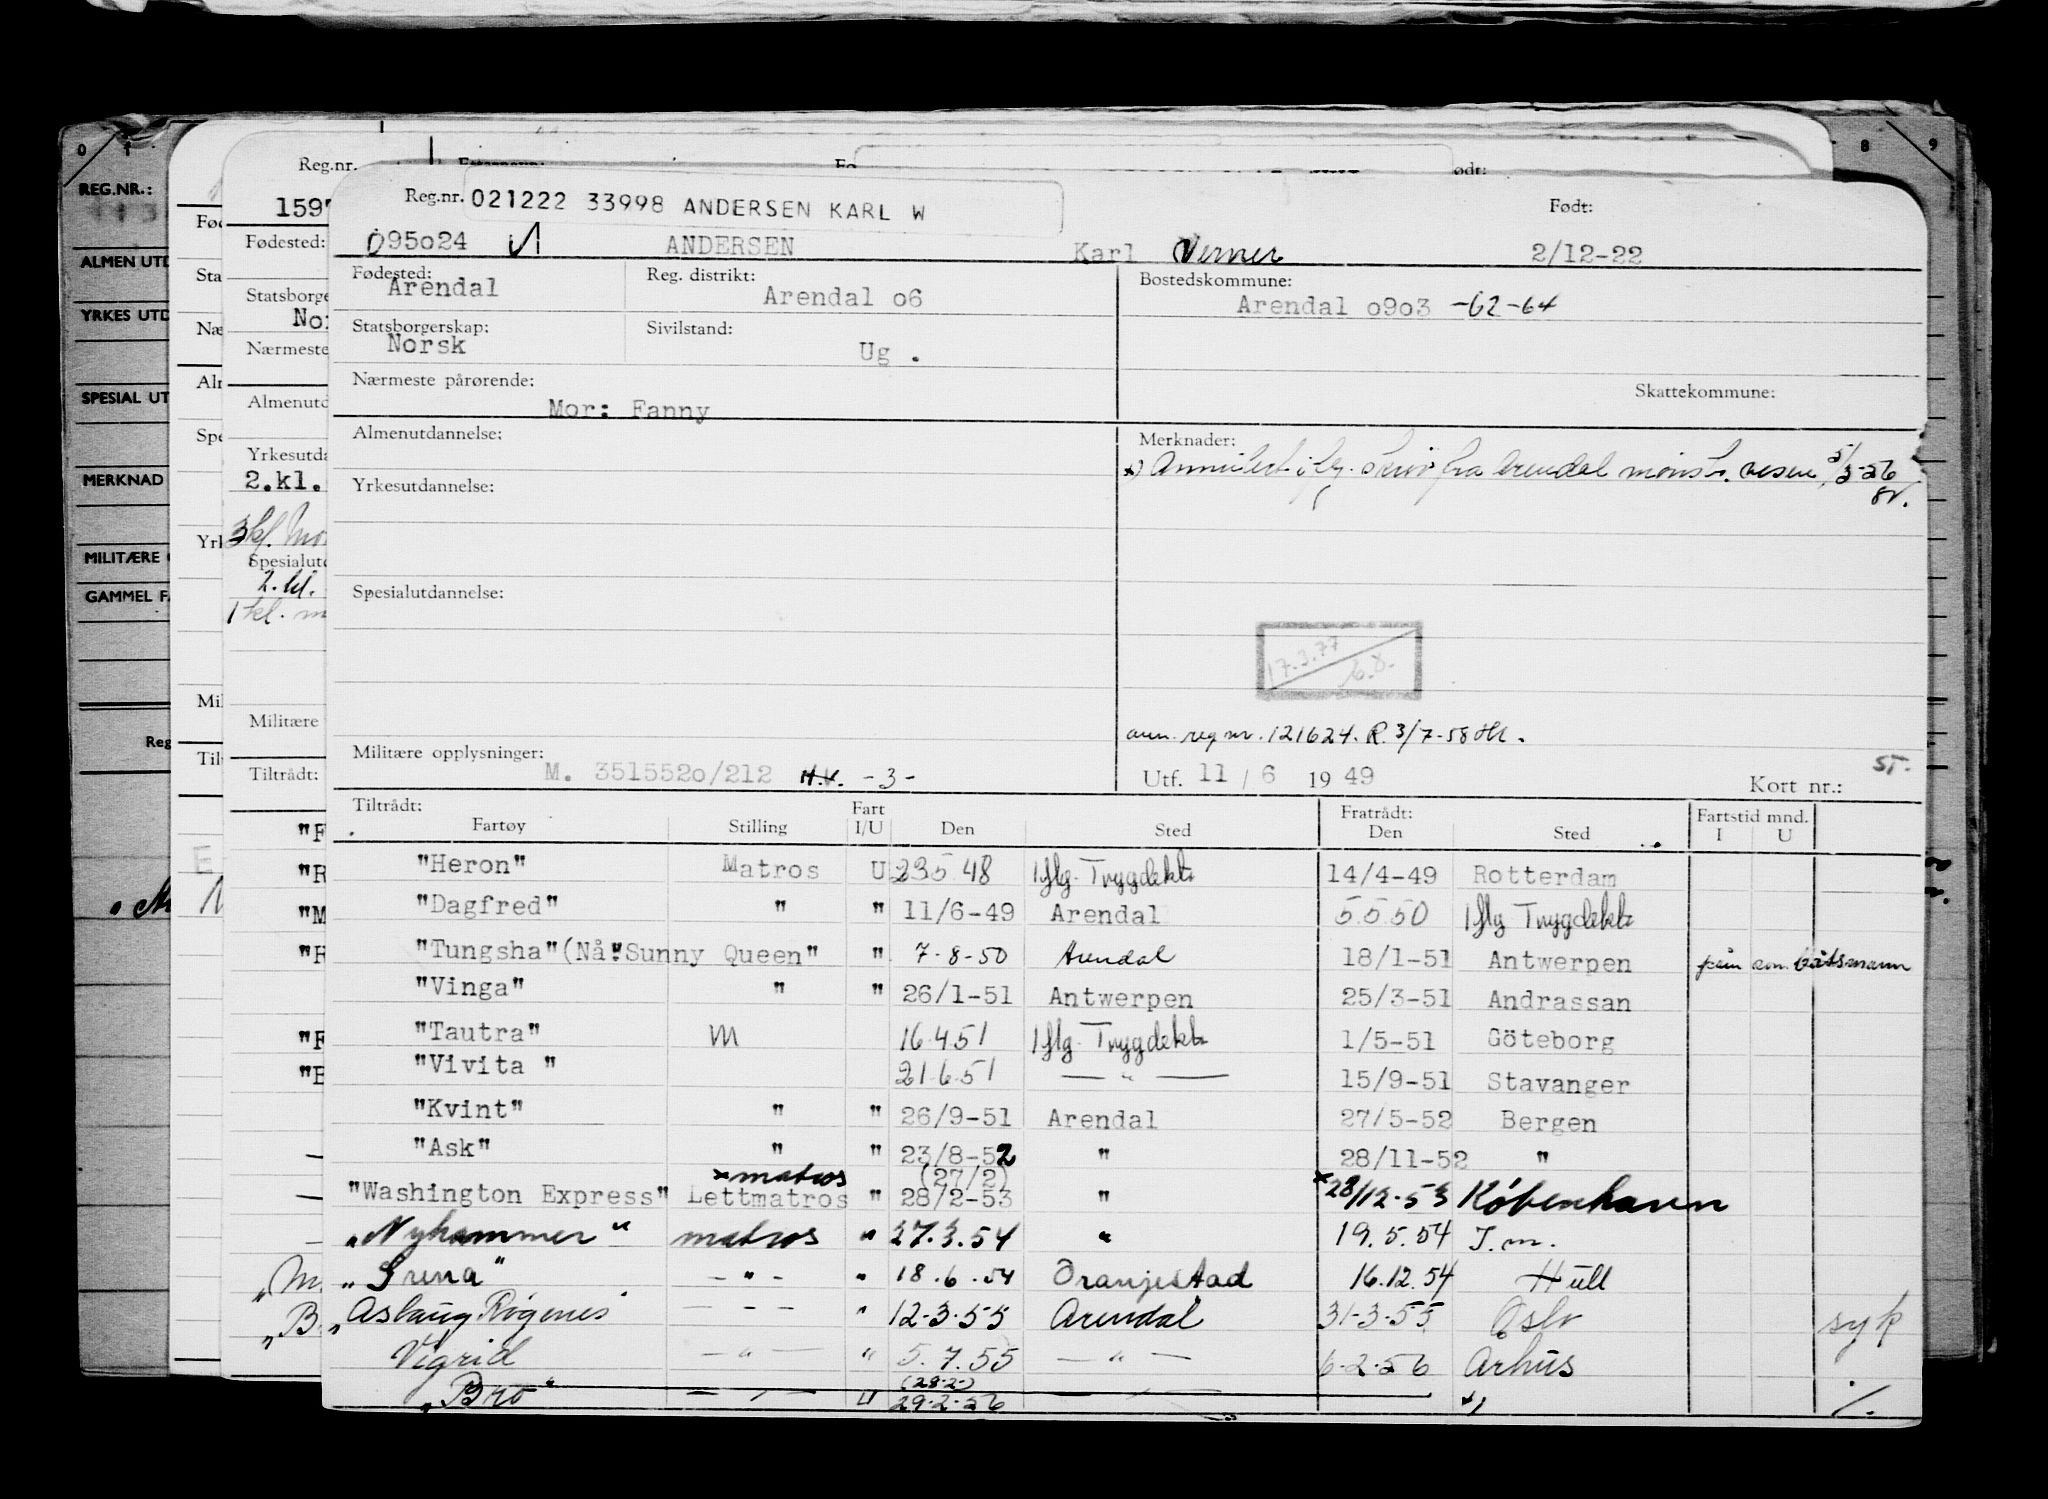 0 1 8 9
REG.NR.:
ALMEN UTD
YRKES UTD
SPESIAL UT
MERKNAD
MILITÆRE
GAMMEL F
Reg
Reg.nr.
1597
Fødested:
Statsborge
Nærmeste
Almenutd
Yrkesutda
2.kl.
3 kl.
Spesialutd
2. kl.
1 kl. m
Militære
Tiltrådt:
Reg.nr. 021222 33998 ANDERSEN KARL W
Født:
095024 ANDERSEN Karl Verner 2/12-22
Fødested: Arendal
Reg. distrikt: Arendal 06
Bostedskommune: Arendal 0903 -62-64
Statsborgerskap: Norsk
Sivilstand: Ug.
Nærmeste pårørende: Mor: Fanny
Skattekommune:
Almenutdannelse:
Merknader:
x) Annullert iflg. skriv fra Arendal mønstr. vesen 5/3-56
Yrkesutdannelse:
Spesialutdannelse:
17.3.77 / 6.8.
ann. reg nr. 121624. R. 3/7-58
Militære opplysninger: M. 3515520/212 H.V. -3-
Utf. 11 / 6 19 49
Kort nr.: ST.
Tiltrådt: Fratrådt: Fartstid mnd.
Fartøy Stilling Fart I/U Den Sted Den Sted I U
"Heron" Matros U 23 5 48 Iflg. Trygdekt. 14/4-49 Rotterdam
"Dagfred" " " 11/6-49 Arendal 5.5.50 Iflg Trygdekt.
"Tungsha"(Nå:"Sunny Queen" " 7-8-50 Arendal 18/1-51 Antwerpen båtsmann
"Vinga" " " 26/1-51 Antwerpen 25/3-51 Andrassan
"Tautra" M 16.4.51 Iflg. Trygdekt. 1/5-51 Göteborg
"Vivita " 21.6.51 — " — 15/9-51 Stavanger
"Kvint" " " 26/9-51 Arendal 27/5-52 Bergen
"Ask" " " 23/8-52 " 28/11-52 "
x matros (27/2)
"Washington Express" Lettmatros " 28/2-53 " x 28/12-53 København
"Nyhammer" matros " 27.3.54 " 19.5.54 T.m.
"Grena" - " - " 18.6.54 Oranjestad 16.12.54 Hull
"Aslaug Rogenes" - - - " 12-3-55 Arendal 31-3-55 Oslo syk
Vigrid — " — " 5.7.55 — " — 6-2-56 Århus
(28.2.)
"Bro" U 29.2.56 x) ./.